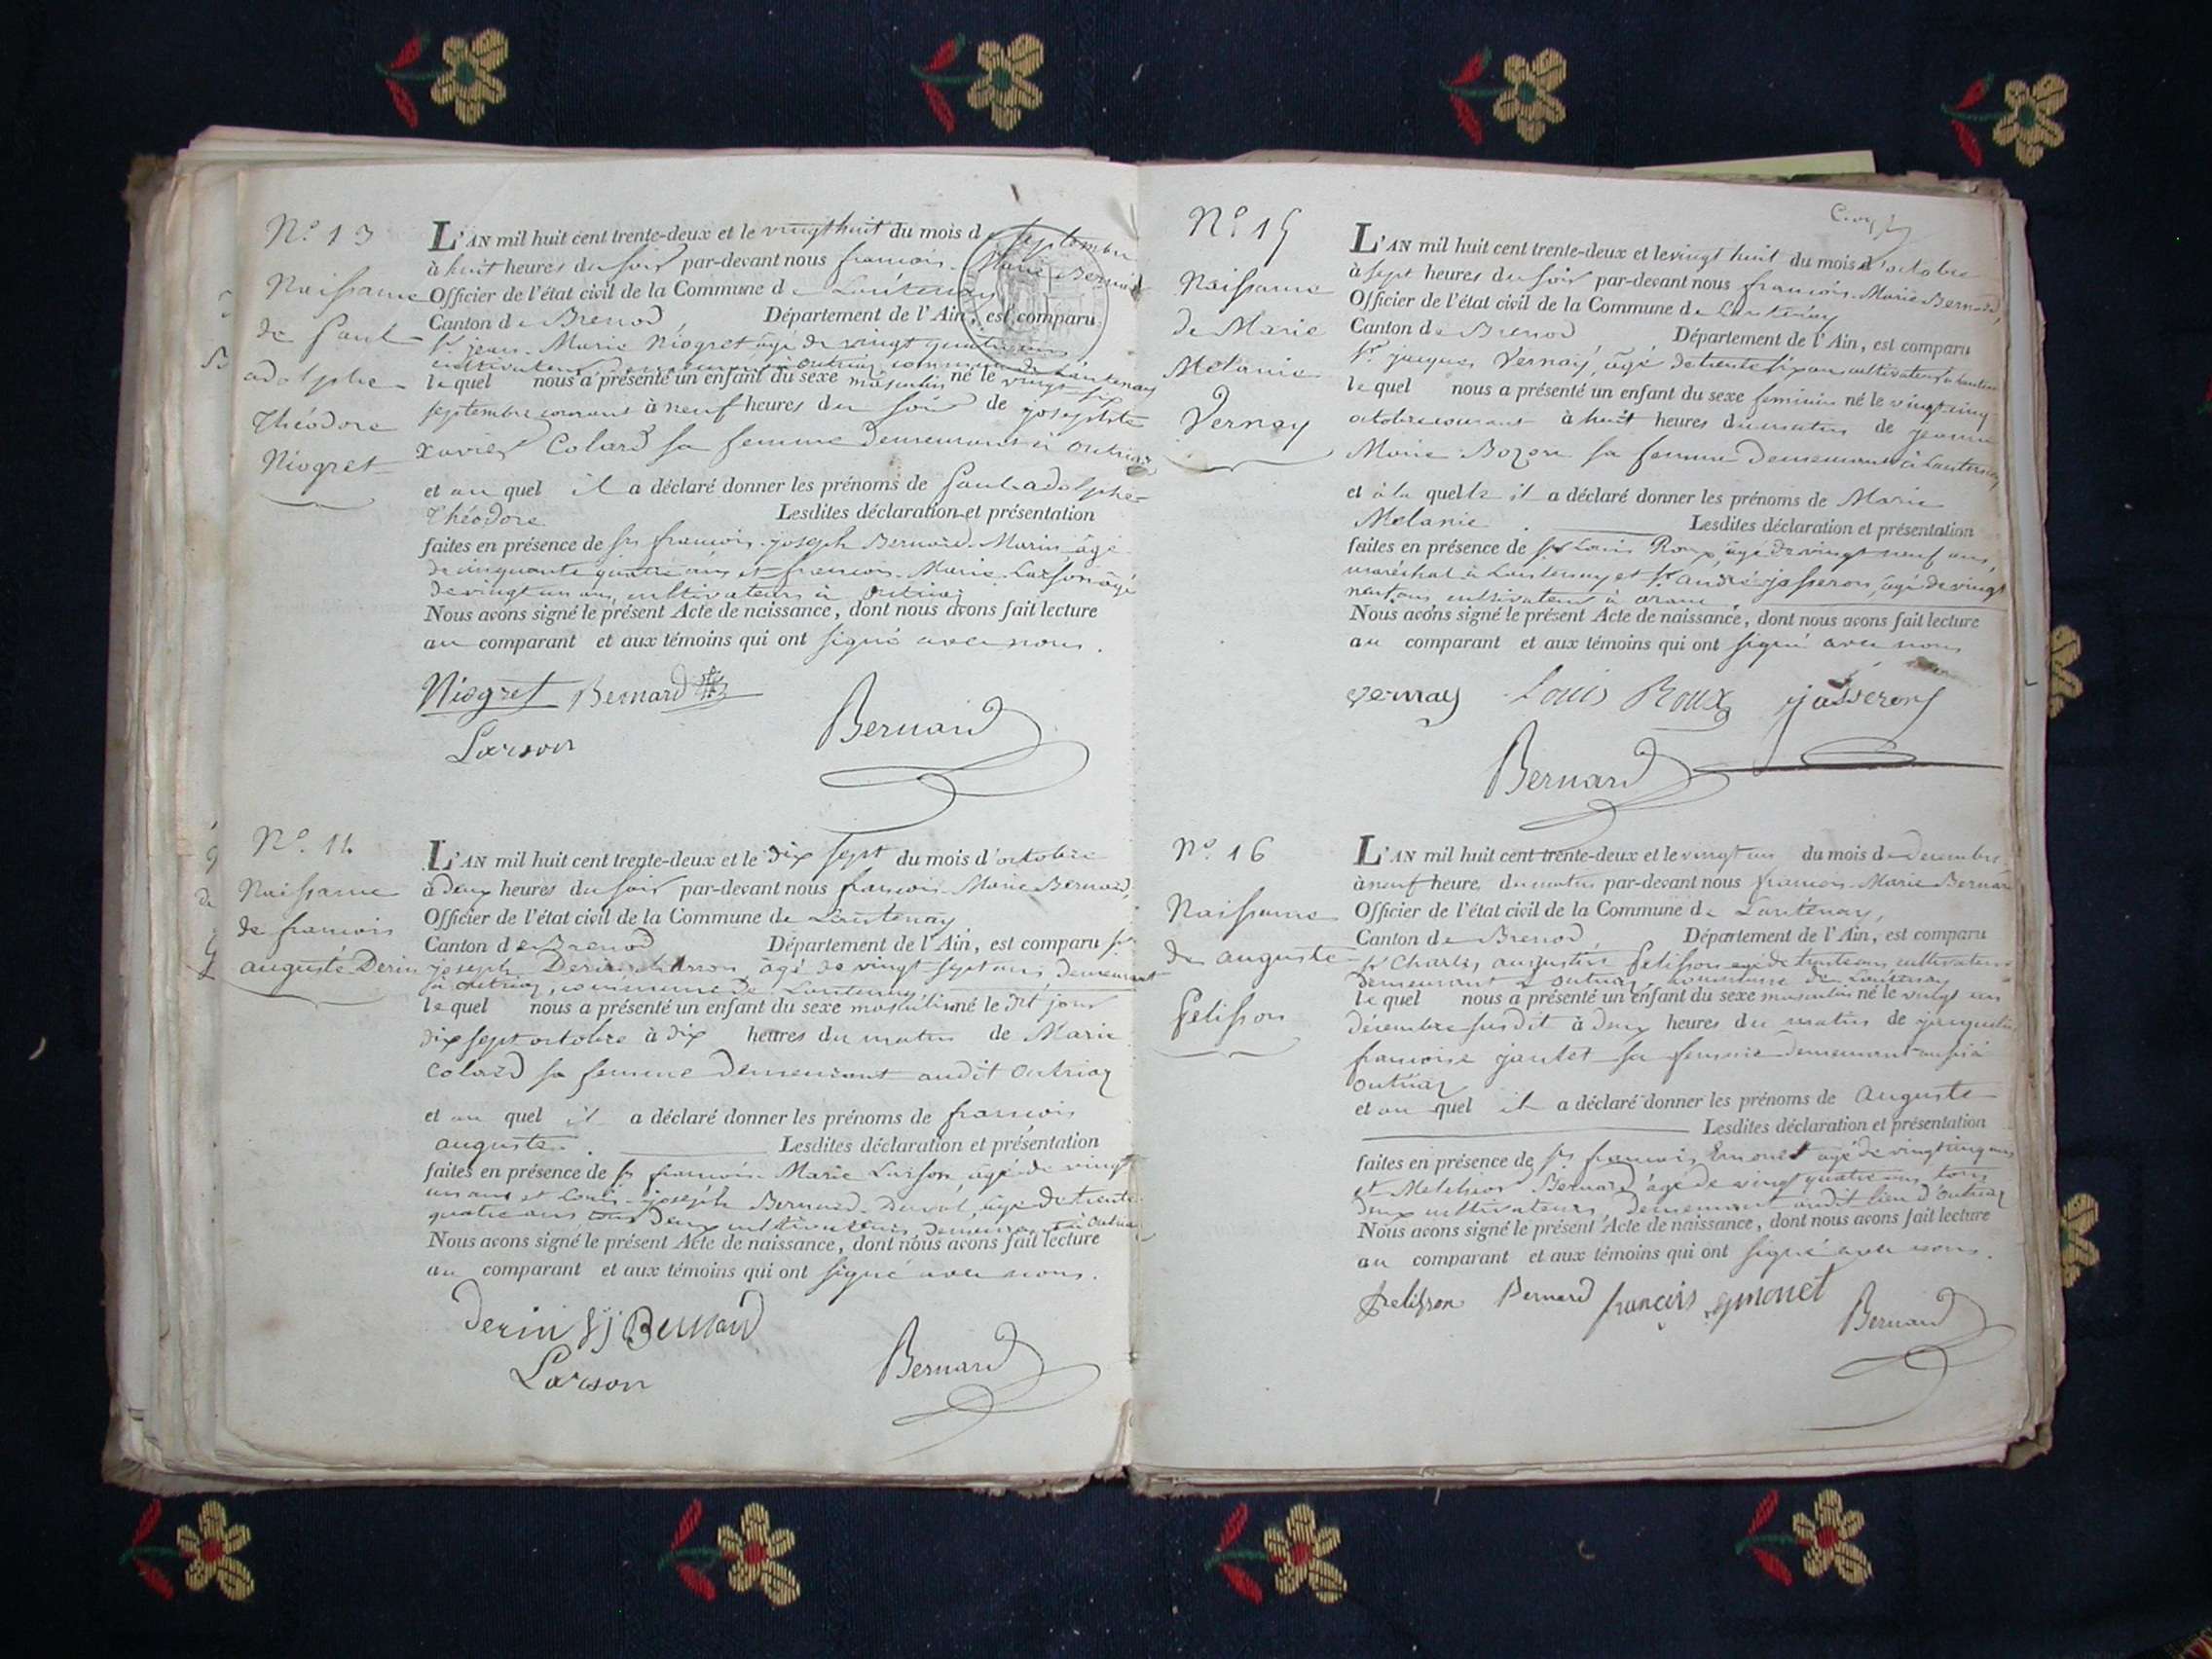 N.o 13
Naissance
de Paul
adolphe
Théodore
Niogret
L'AN mil huit cent trente-deux et le vingt huit du mois de septembre
à huit heures du soir par-devant nous francois Marie Bernard
Officier de l'état civil de la Commune de Lantenay
Canton de Brenod Département de l'Ain, est comparu
sr. jean-Marie Niogret âgé de vingt quatre ans
cultivateur demeurant à outriaz commune de Lantenay
lequel nous a présenté un enfant du sexe masculin né le vingt-six
septembre courant à neuf heures du soir de josephte
xavier Colard sa femme demeurant à outriaz
et au quel il a déclaré donner les prénoms de Paul adolphe
Théodore Lesdites déclaration et présentation
faites en présence de srs francois-joseph Bernard-Marin âgé
de cinquante quatre ans et francois-Marie Larson âgé
de vingt un ans, cultivateurs à outriaz
Nous avons signé le présent Acte de naissance, dont nous avons fait lecture
au comparant et aux témoins qui ont signé avec nous.
Niogret Bernard
Larson Bernard
N.o 14
Naissance
de francois
auguste Derin
L'AN mil huit cent trente-deux et le dix sept du mois d'octobre
à deux heures du soir par-devant nous francois-Marie Bernard,
Officier de l'état civil de la Commune de Lantenay
Canton de Brenod Département de l'Ain, est comparu sr
joseph Derin âgé de vingt sept ans, demeurant
à outriaz, commune de Lantenay
lequel nous a présenté un enfant du sexe masculin né le dit jour
dix sept octobre à dix heures du matin de Marie
Colard sa femme demeurant audit outriaz
et au quel il a déclaré donner les prénoms de francois
auguste. Lesdites déclaration et présentation
faites en présence de srs francois-Marie Larson, âgé de vingt
un ans et Louis-joseph Bernard-Duval, âgé de trente
quatre ans tous deux cultivateurs, demeurant à outriaz
Nous avons signé le présent Acte de naissance, dont nous avons fait lecture
au comparant et aux témoins qui ont signé avec nous.
Derin Bernard
Larson Bernard
N.o 15
Naissance
de Marie
Melanie
Vernay
L'AN mil huit cent trente-deux et le vingt huit du mois d'octobre
à sept heures du soir par-devant nous francois-Marie Bernard,
Officier de l'état civil de la Commune de Lantenay
Canton de Brenod Département de l'Ain, est comparu
sr. jacques Vernay, âgé de trente six ans cultivateur à Lantenay
lequel nous a présenté un enfant du sexe feminin né le vingt cinq
octobre courant à huit heures du matin de jeanne
Marie Bozon sa femme demeurant à Lantenay
et à la quelle il a déclaré donner les prénoms de Marie
Melanie. Lesdites déclaration et présentation
faites en présence de srs Louis Roux, âgé de vingt neuf ans,
maréchal à Lantenay et sr. andré jasseron, âgé de vingt
neuf ans cultivateur à aranc
Nous avons signé le présent Acte de naissance, dont nous avons fait lecture
au comparant et aux témoins qui ont signé avec nous
vernay Louis Roux jasseron
Bernard
N.o 16
Naissance
de auguste
Pelisson
L'AN mil huit cent trente-deux et le vingt un du mois de decembre
à neuf heure du matin par-devant nous francois-Marie Bernard
Officier de l'état civil de la Commune de Lantenay,
Canton de Brenod Département de l'Ain, est comparu
sr Charles augustin Pelisson agé de trente ans, cultivateur
demeurant à outriaz, commune de Lantenay
lequel nous a présenté un enfant du sexe masculin né le vingt un
décembre susdit à deux heures du matin de jacqueline
francoise jantet sa femme demeurant aussi à
outriaz
et au quel il a déclaré donner les prénoms de auguste
Lesdites déclaration et présentation
faites en présence de srs francois Emonet agé de vingt cinq ans
et Melchior Bernard âgé de vingt quatre ans tous
deux cultivateurs, demeurant audit lieu d'outriaz
Nous avons signé le présent Acte de naissance, dont nous avons fait lecture
au comparant et aux témoins qui ont signé avec nous.
Pelisson Bernard françois emonet Bernard